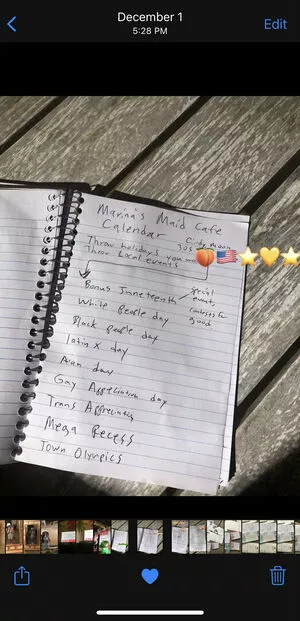 December 1
5:28 PM
Edit
Marina's Maid Cafe
Calendar
City Moon
305
Throw holidays you
Throw Local events
Special
events
contests for
good
Bonus Juneteenth
White People day
Black people day
latin x day
Asian day
Gay Appreciation day
Trans Appreciation
Mega Recess
Town Olympics